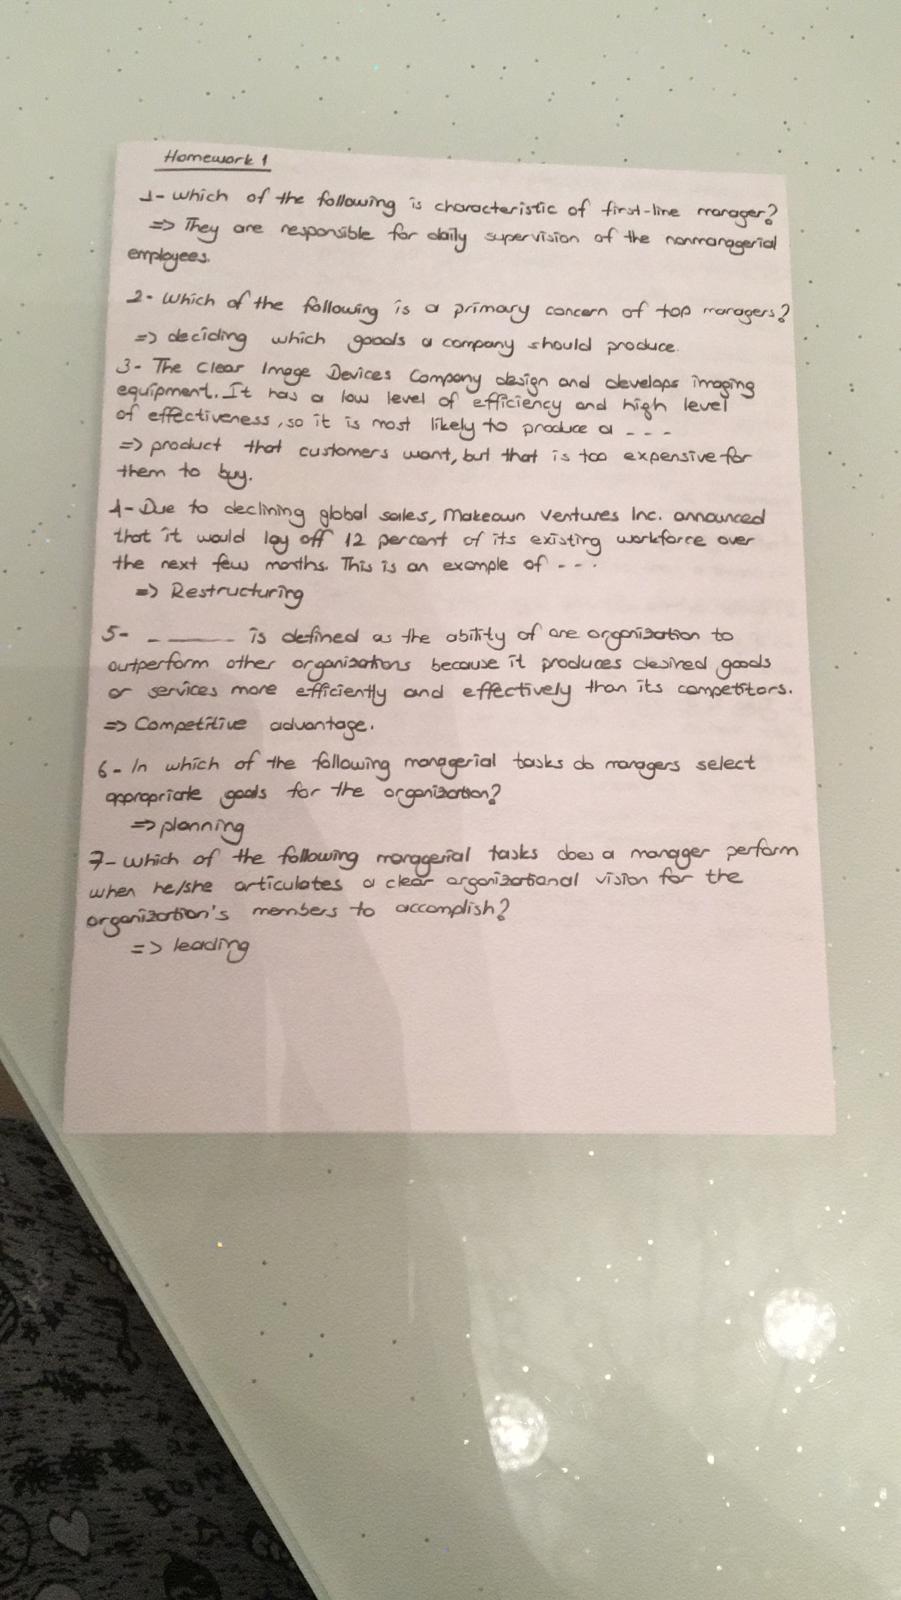 Homework 1
1- Which of the following is characteristic of first-line manager?
=> They are responsible for daily supervision of the nonmanagerial
employees.
2- Which of the following is a primary concern of top managers?
=> deciding which goods a company should produce.
3- The Clear Image Devices Company design and develops imaging
equipment. It has a low level of efficiency and high level
of effectiveness, so it is most likely to produce a - - -
=> product that customers want, but that is too expensive for
them to buy.
4- Due to declining global sales, Makeown Ventures Inc. announced
that it would lay off 12 percent of its existing workforce over
the next few months. This is an example of - - -
=> Restructuring
5- _ ______ is defined as the ability of one organization to
outperform other organizations because it produces desired goods
or services more efficiently and effectively than its competitors.
=> Competitive advantage.
6- In which of the following managerial tasks do managers select
appropriate goals for the organization?
=> planning
7- Which of the following managerial tasks does a manager perform
when he/she articulates a clear organizational vision for the
organization's members to accomplish?
=> leading